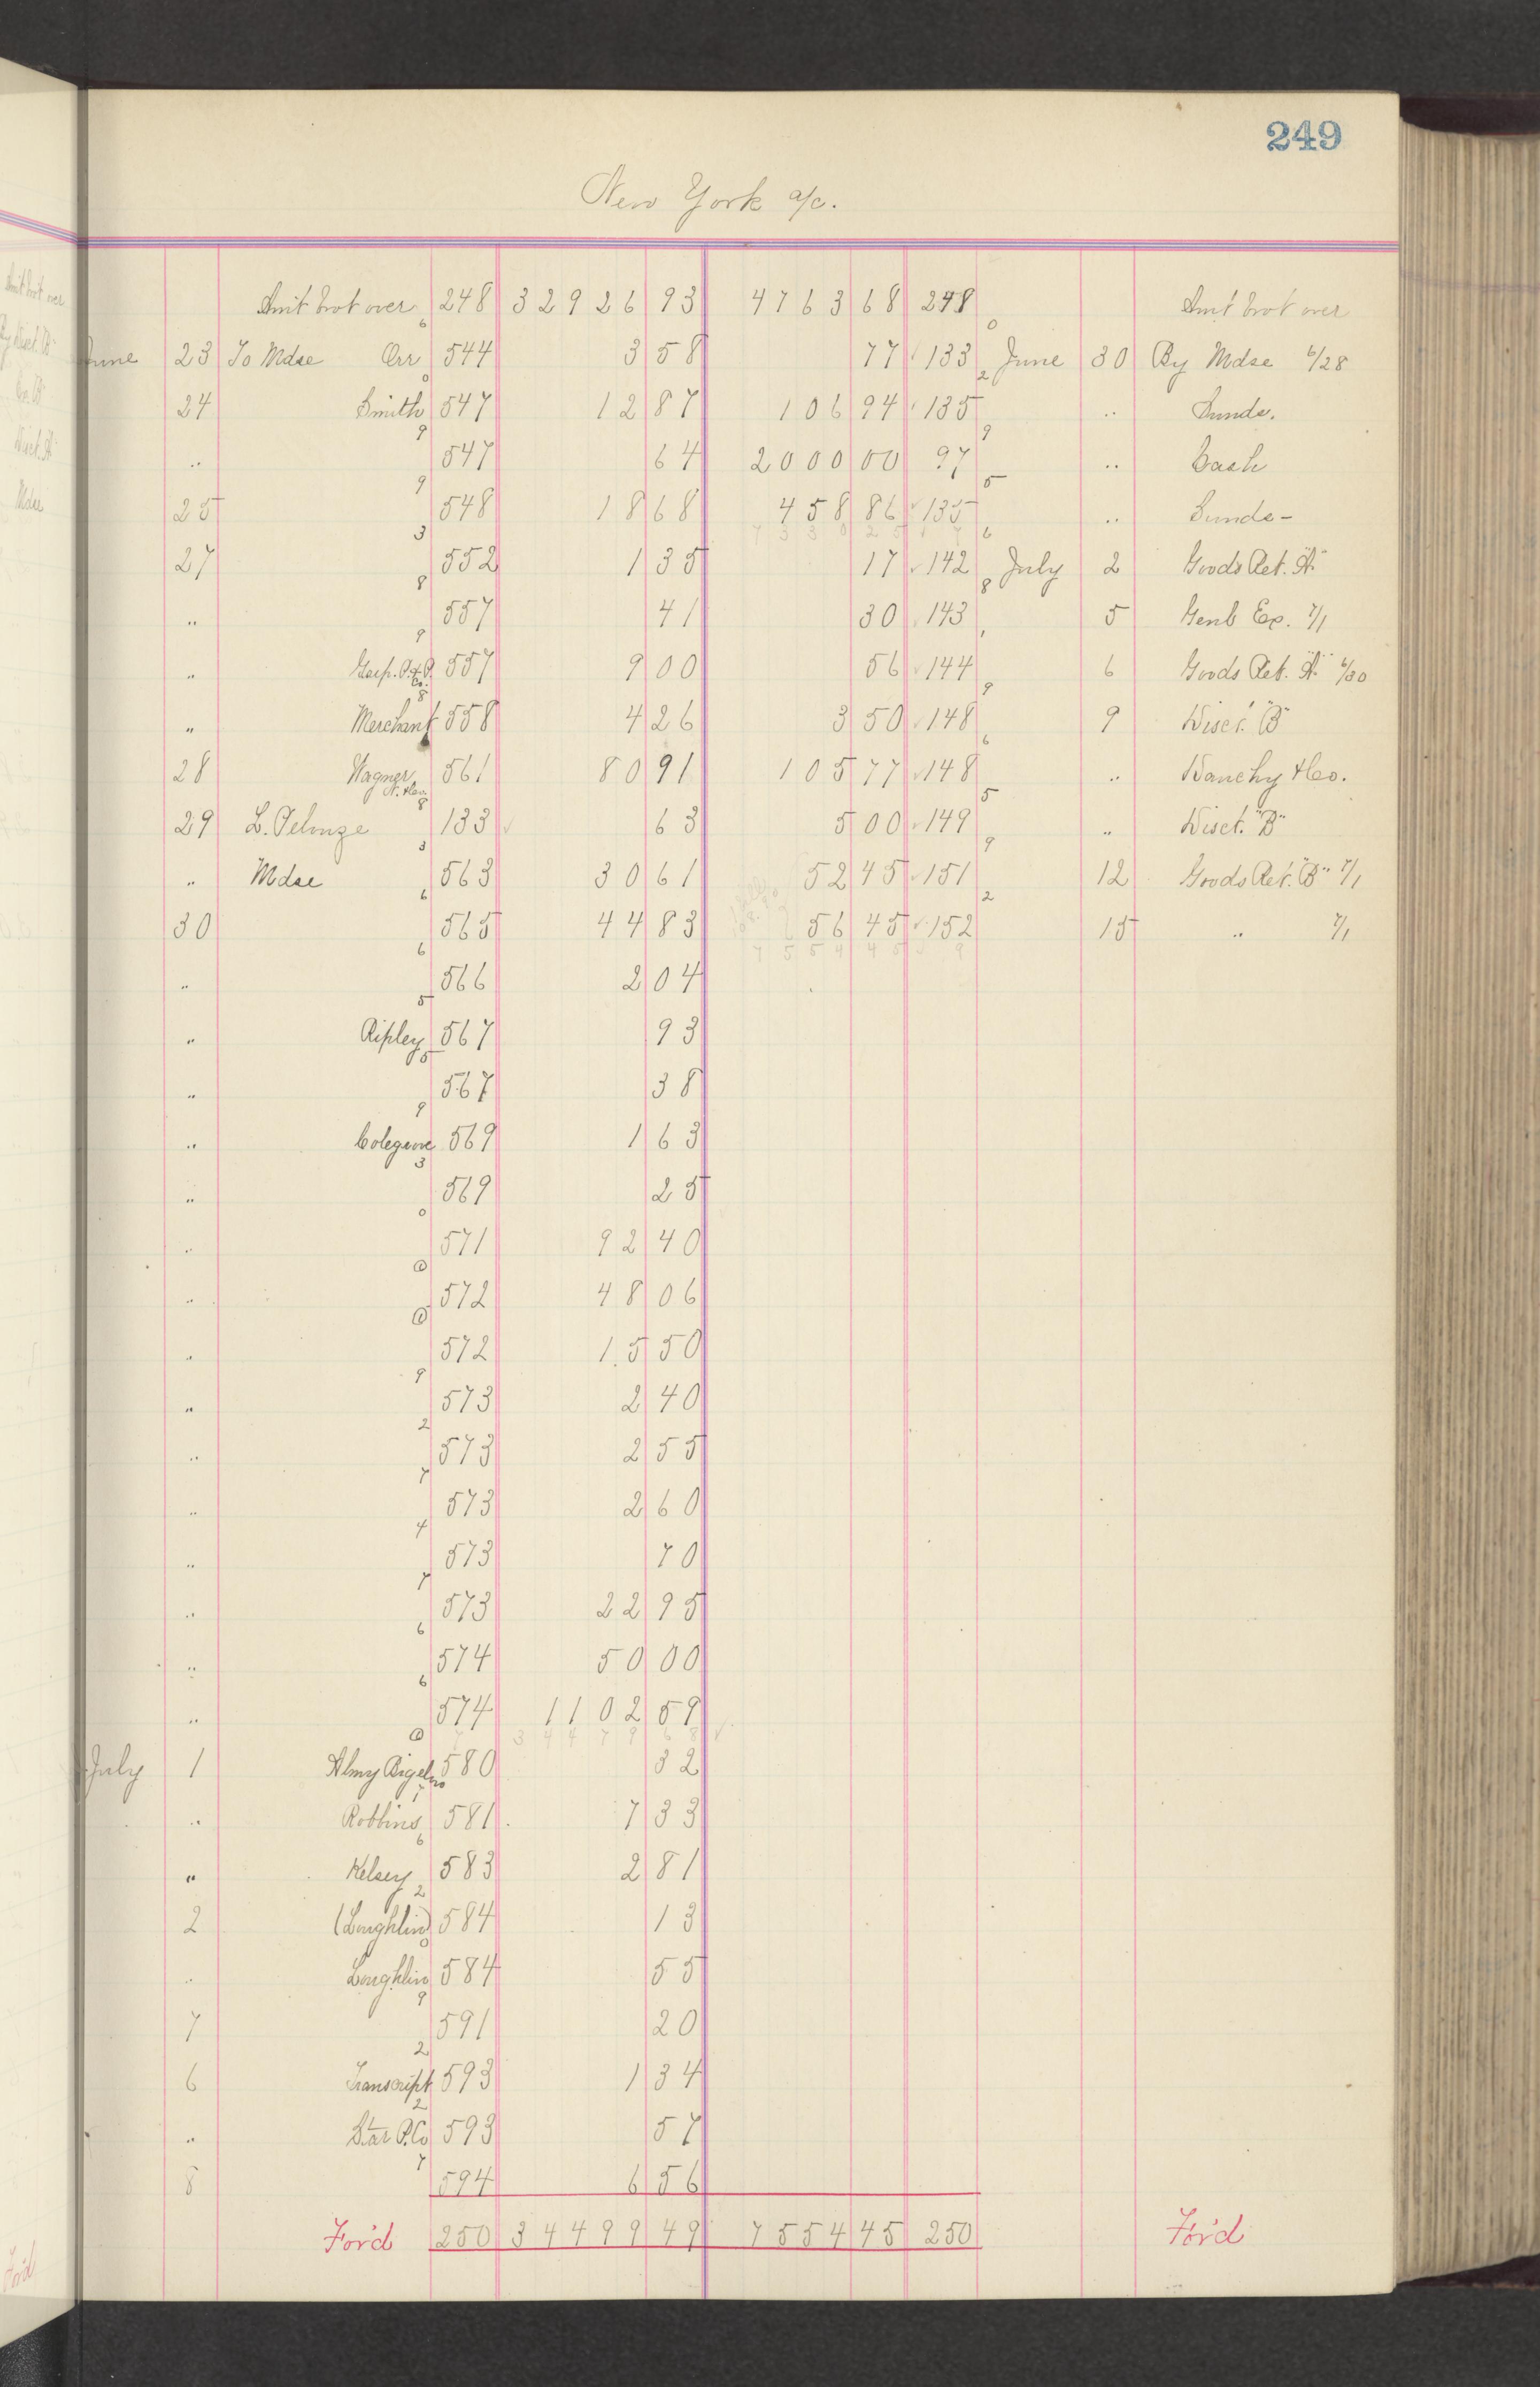 249
New York a/c.
Amt brot over 248 32926 93 4763 68 248 Amt brot over
June 23 To Mdse Orr 544 3 58 77 133 June 30 By Mdse 6/28
24 Smith 547 12 87 106 94 135 " Sunds.
" 547 64 2000 00 97 " Cash
25 548 18 68 458 86 135 " Sunds-
27 552 1 35 17 142 July 2 Goods Ret. "A"
" 557 41 30 143 5 Genl Ex. 7/1
" 557 9 00 56 144 6 Goods Ret. "A" 6/30
" Merchant 558 4 26 3 50 148 9 Disct. "B"
28 Wagner 561 80 91 105 77 148 " Danchy & Co.
29 L. Pelouze 133 63 5 00 149 " Disct. "B"
" Mdse 563 30 61 52 45 151 12 Goods Ret. "B" 7/1
30 565 44 83 56 45 152 15 " 7/1
" 566 2 04
" Ripley 567 93
" 567 38
" Colegrove 569 1 63
" 569 25
" 571 92 40
" 572 48 06
" 572 15 50
" 573 2 40
" 573 2 55
" 573 2 60
" 573 70
" 573 22 95
" 574 50 00
" 574 1102 59
July 1 Almy Bigelow 580 32
" Robbins 581 7 33
" Kelsey 583 2 81
2 (Loughlin) 584 13
" Loughlin 584 55
7 591 20
6 Transcript 593 1 34
" Star P. Co 593 57
8 594 6 56
For'd 250 34499 49 7554 45 250 For'd